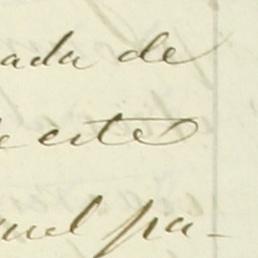 ada de
e este
uel pa-